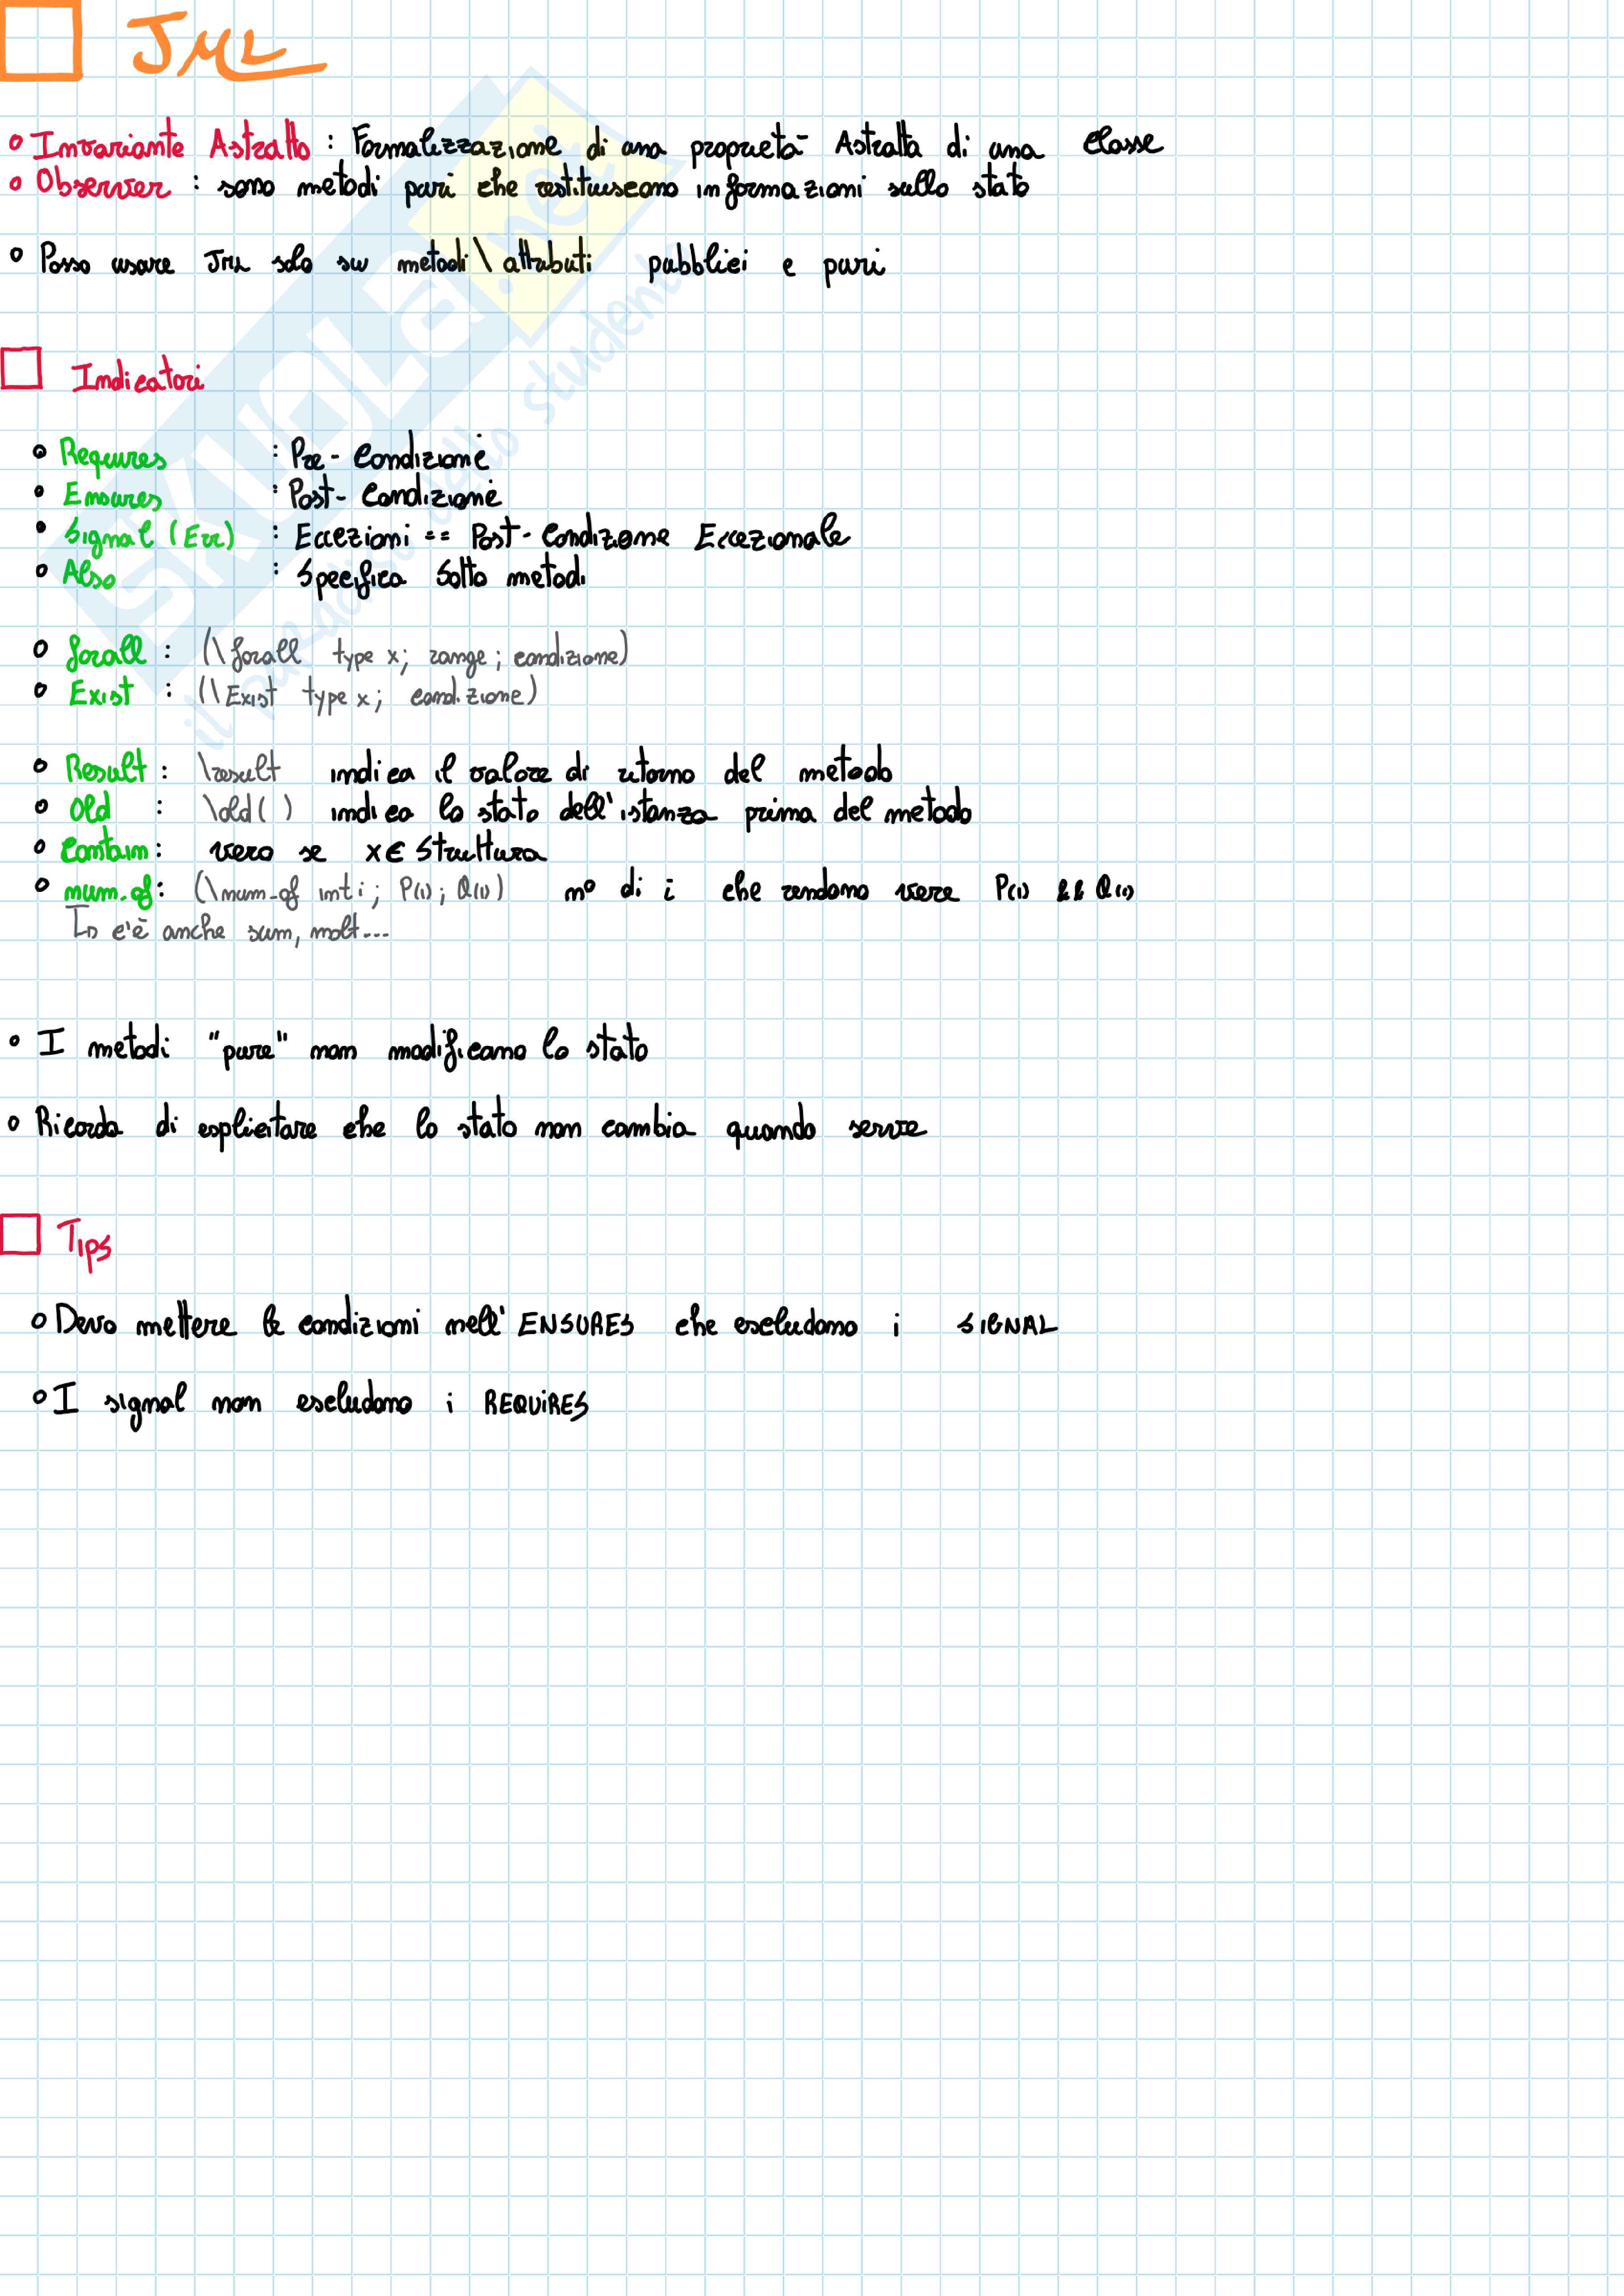 JML
Invariante Astratto : Formalizzazione di una proprietà Astratta di una classe
Observer : sono metodi puri che restituiscono informazioni sullo stato
Posso usare JML solo su metodi \ attributi pubblici e puri
Indicatori
Requires : Pre-Condizione
Ensures : Post-Condizione
Signal (Err) : Eccezioni == Post-Condizione Eccezionale
Also : Specifica Sotto metodi
forall : (\forall type x; range; condizione)
Exist : (\Exist type x; condizione)
Result : \result indica il valore di ritorno del metodo
Old : \old( ) indica lo stato dell'istanza prima del metodo
Contain : vero se x ∈ Struttura
num_of : (\num_of int i; P(i); Q(i)) n° di i che rendono vere P(i) && Q(i)
↳ c'è anche sum, molt...
I metodi "pure" non modificano lo stato
Ricorda di esplicitare che lo stato non cambia quando serve
Tips
Devo mettere le condizioni nell'ENSURES che escludono i SIGNAL
I signal non escludono i REQUIRES
SKUOLA.net
il paradiso dello studente